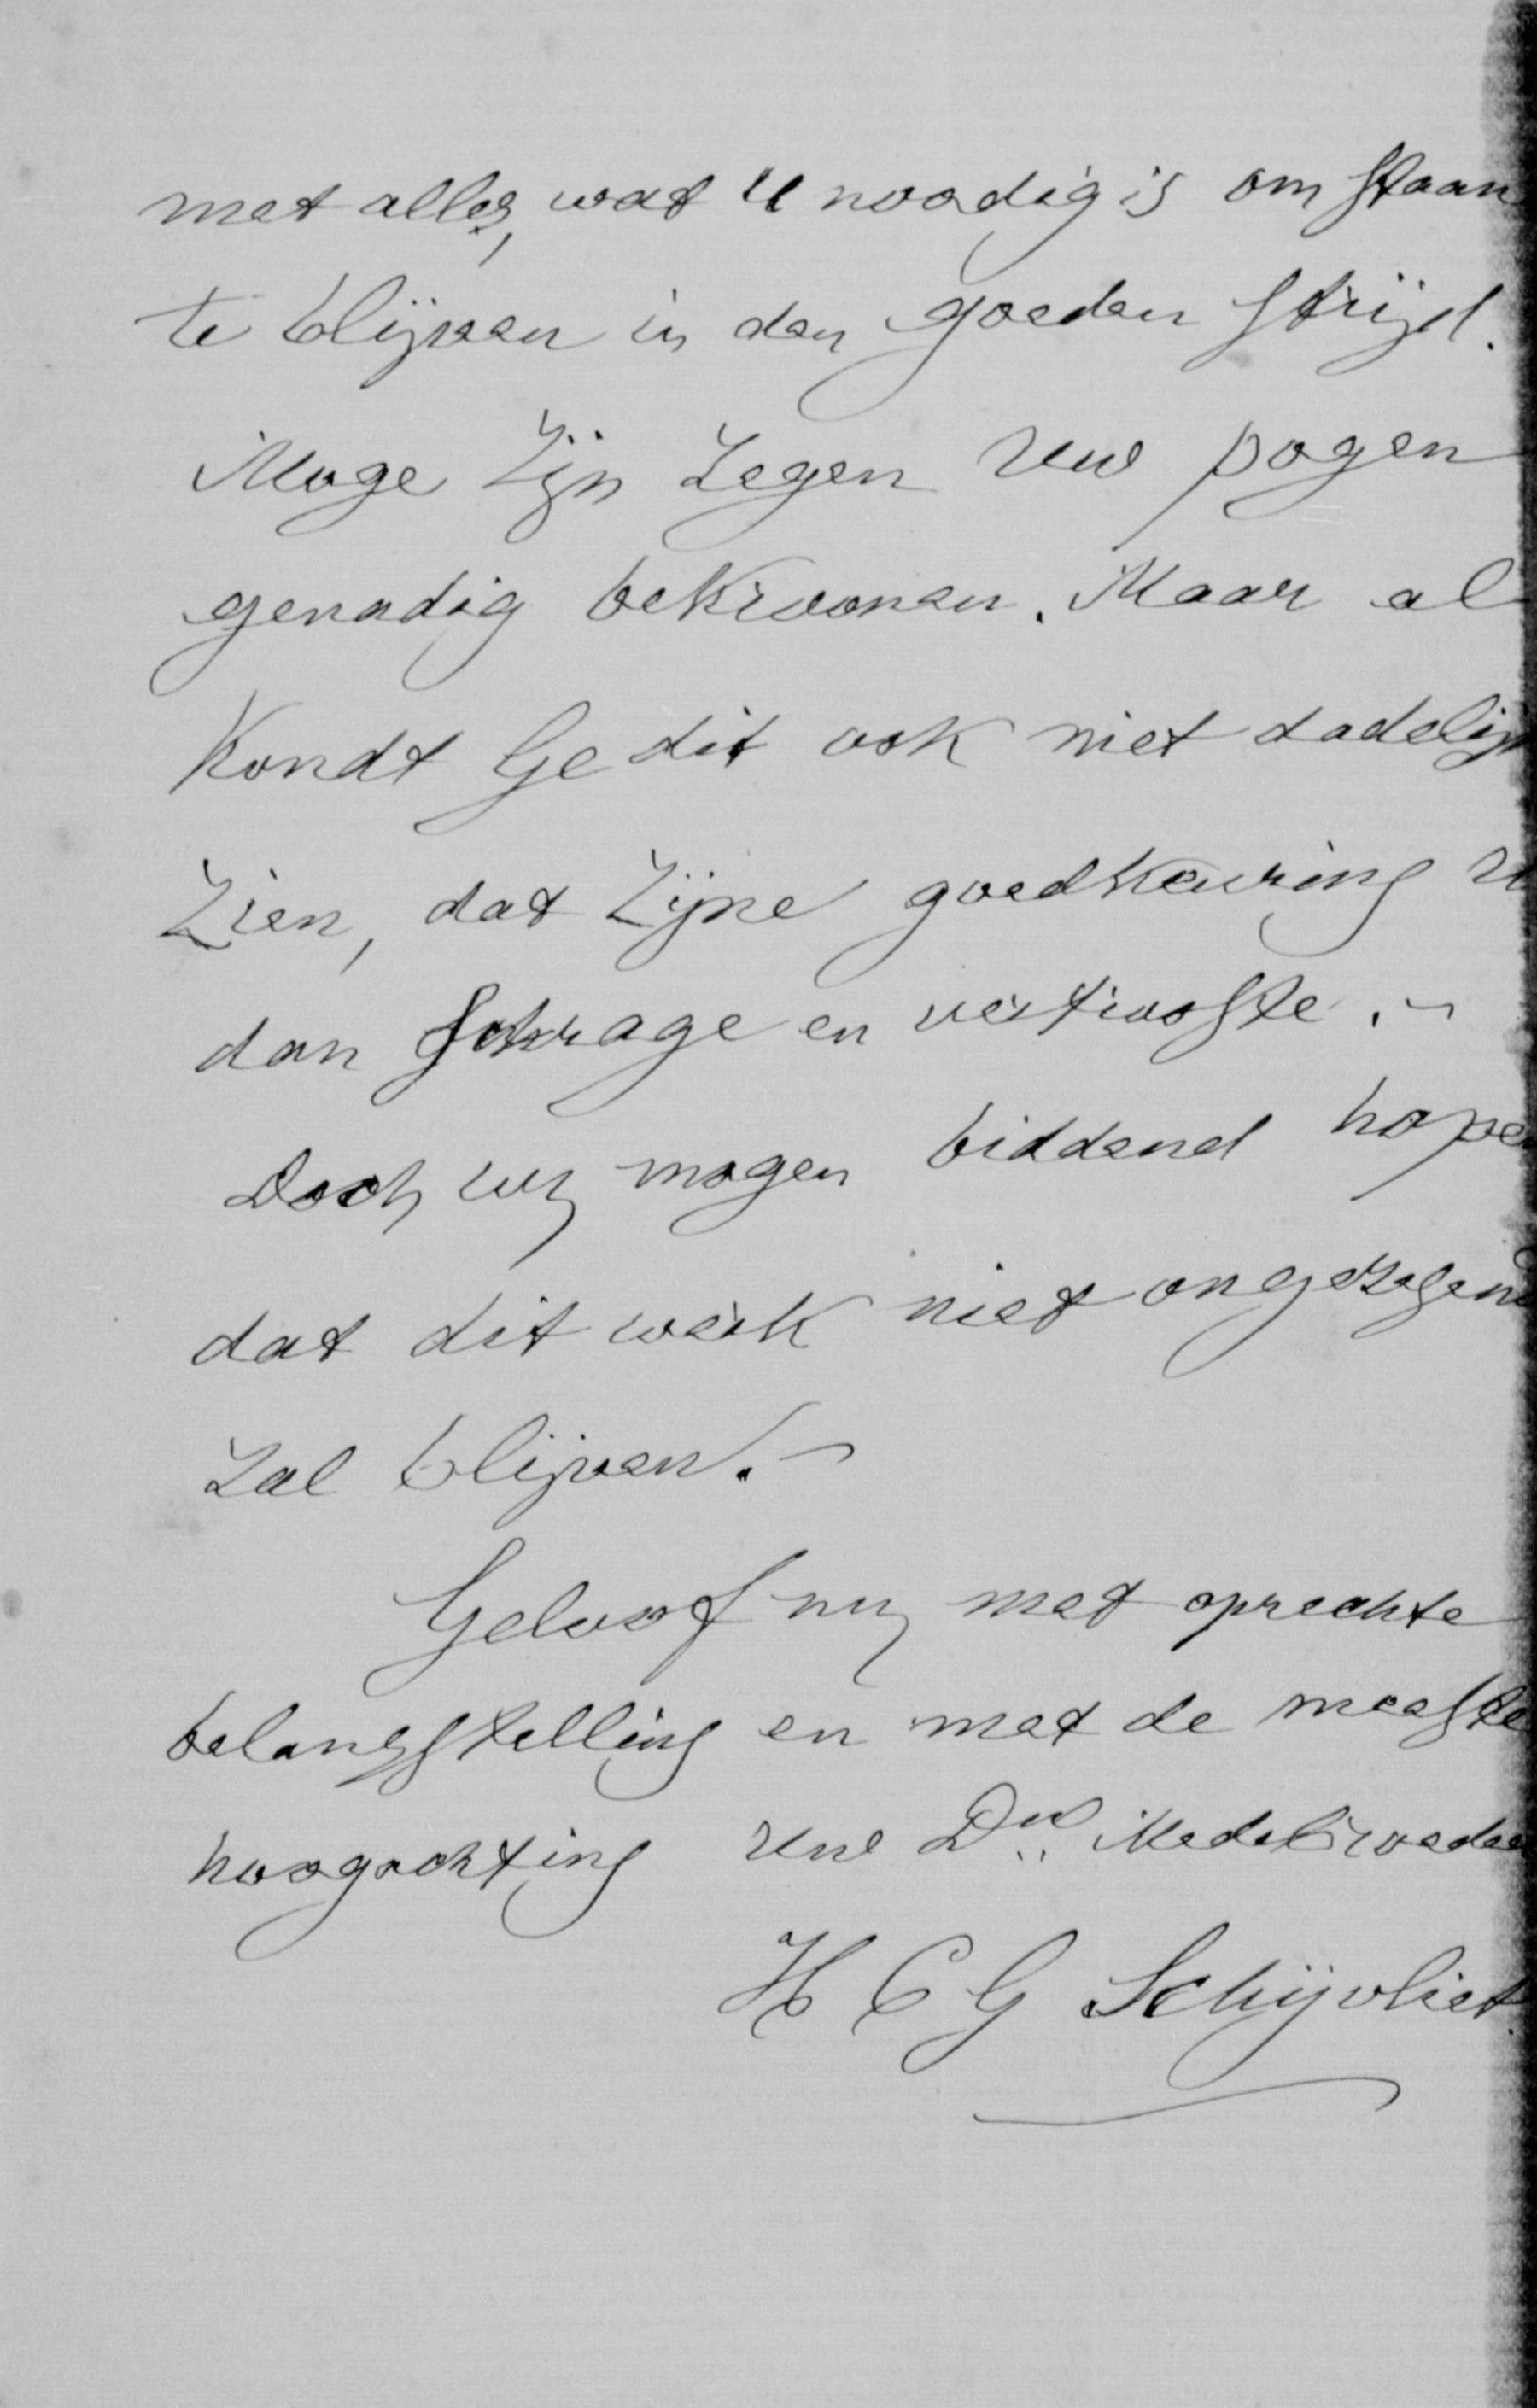 met alles, wat U noodig is om staan
te blijven in den goeden strijd.
Moge Zijn Zegen Uw pogen
genadig bekroonen. Maar al
Kondt Ge dit ook niet dadelijk
Zien, dat Zijne goedkeuring U
dan schrage en vertrooste. -
Doch wij mogen biddend hopen
dat dit werk niet ongezegend
Zal blijven. -
Geloof mij met oprechte
belangstelling en met de meeste
hoogachting Uw Dw. Medebroeder
H C G Schijvliet.